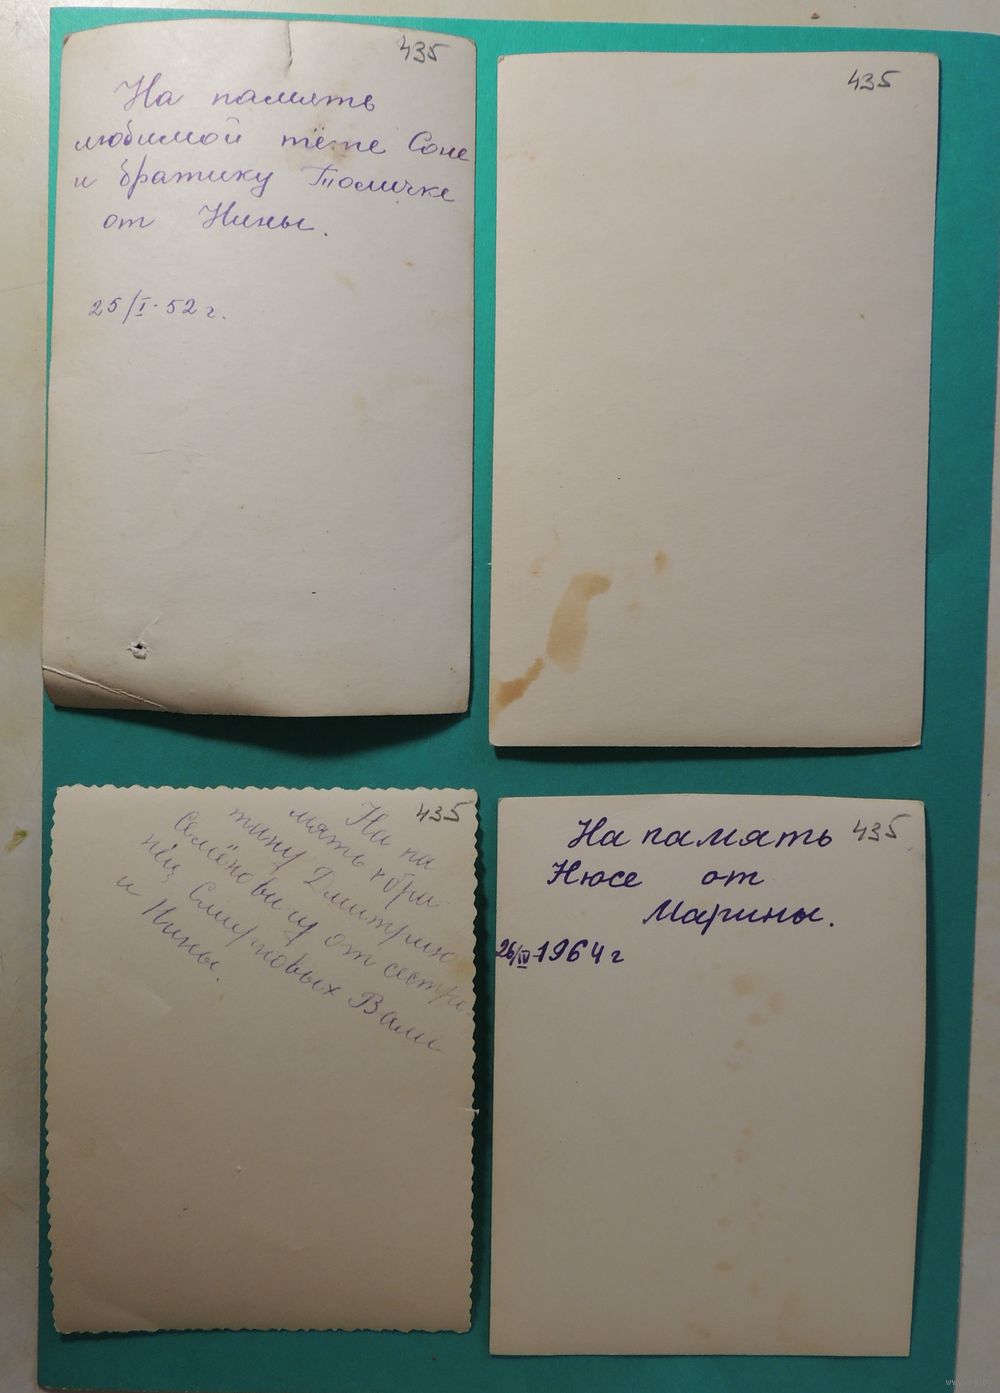 435
На память
любимой тёте Соне
и братику Толичке
от Нины.
25/I·52 г.
435
435
На па
мять бра
тину Дмитрию
Семёновичу от сестре
нец Смирновых Вали
и Нины.
На память 435
Нюсе от
Марины.
26/IV 1964 г